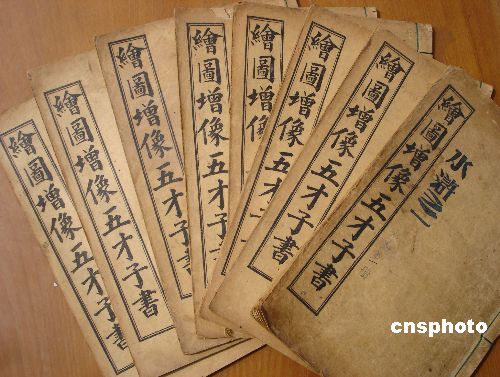 繪圖增像五才子書
繪圖增像五才子書
繪圖增像五才子書
繪圖增像五才子書
繪圖增像
繪圖增像五才子書
繪圖增像五才子書
繪圖增像五才子書
水滸
cnsphoto